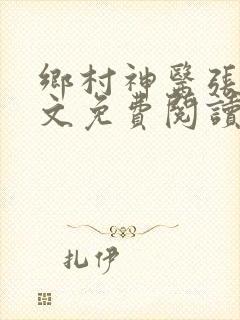 鄉村神醫張
文免費閱讀
扎伊